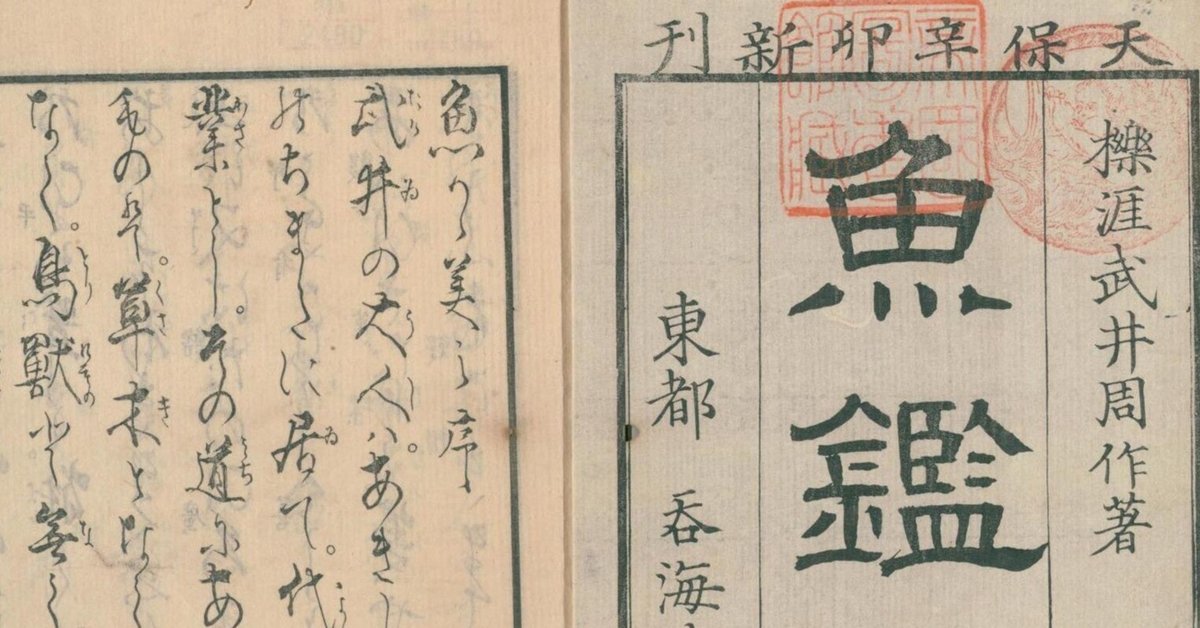 天保辛卯新刊
櫟涯武井周作著
魚鑑
東都 呑海
魚かゝ美の序
武井の大人ハ。あき
のちまたに居て。代
業とし。その道にあ
草木となく
なく。鳥獣